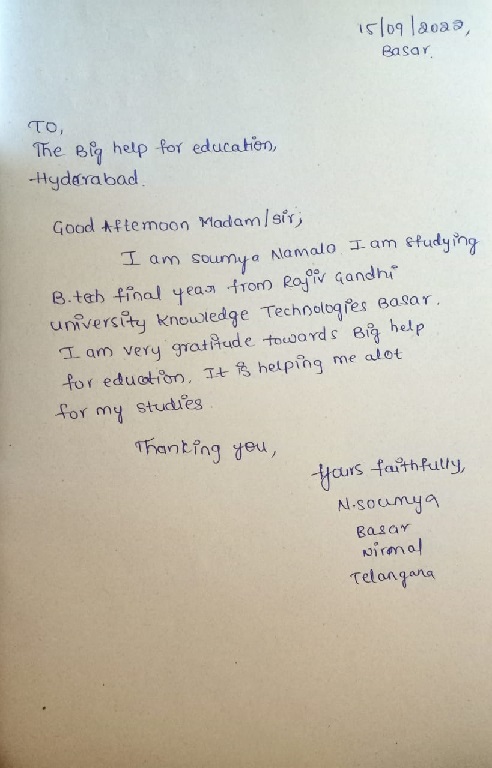 15/09/2022,
Basar.
TO,
The Big help for education,
Hyderabad.
Good Afternoon Madam/sir,
I am soumya Namala I am studying
B.teh final year from Rajiv Gandhi
university knowledge Technologies Basar.
I am very gratitude towards Big help
for education. It is helping me alot
for my studies.
Thanking you,
Yours faithfully,
N.soumya
Basar
Nirmal
Telangana